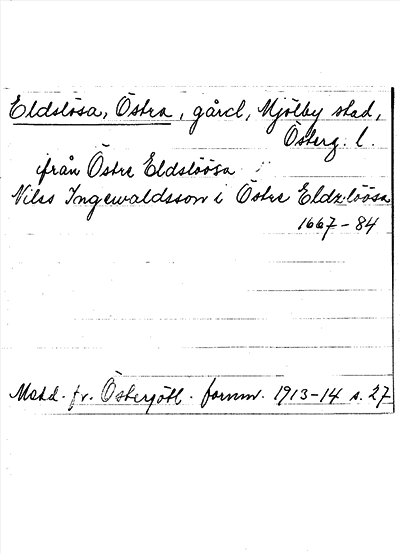 Eldslösa, Östra, gård, Mjölby stad,
Österg. l.
från Östre Eldslöösa
Nils Ingewaldsson i Östre Eldzlöösa
1667-84
Medd. fr. Östergötl. fornm. 1913-14 s. 27